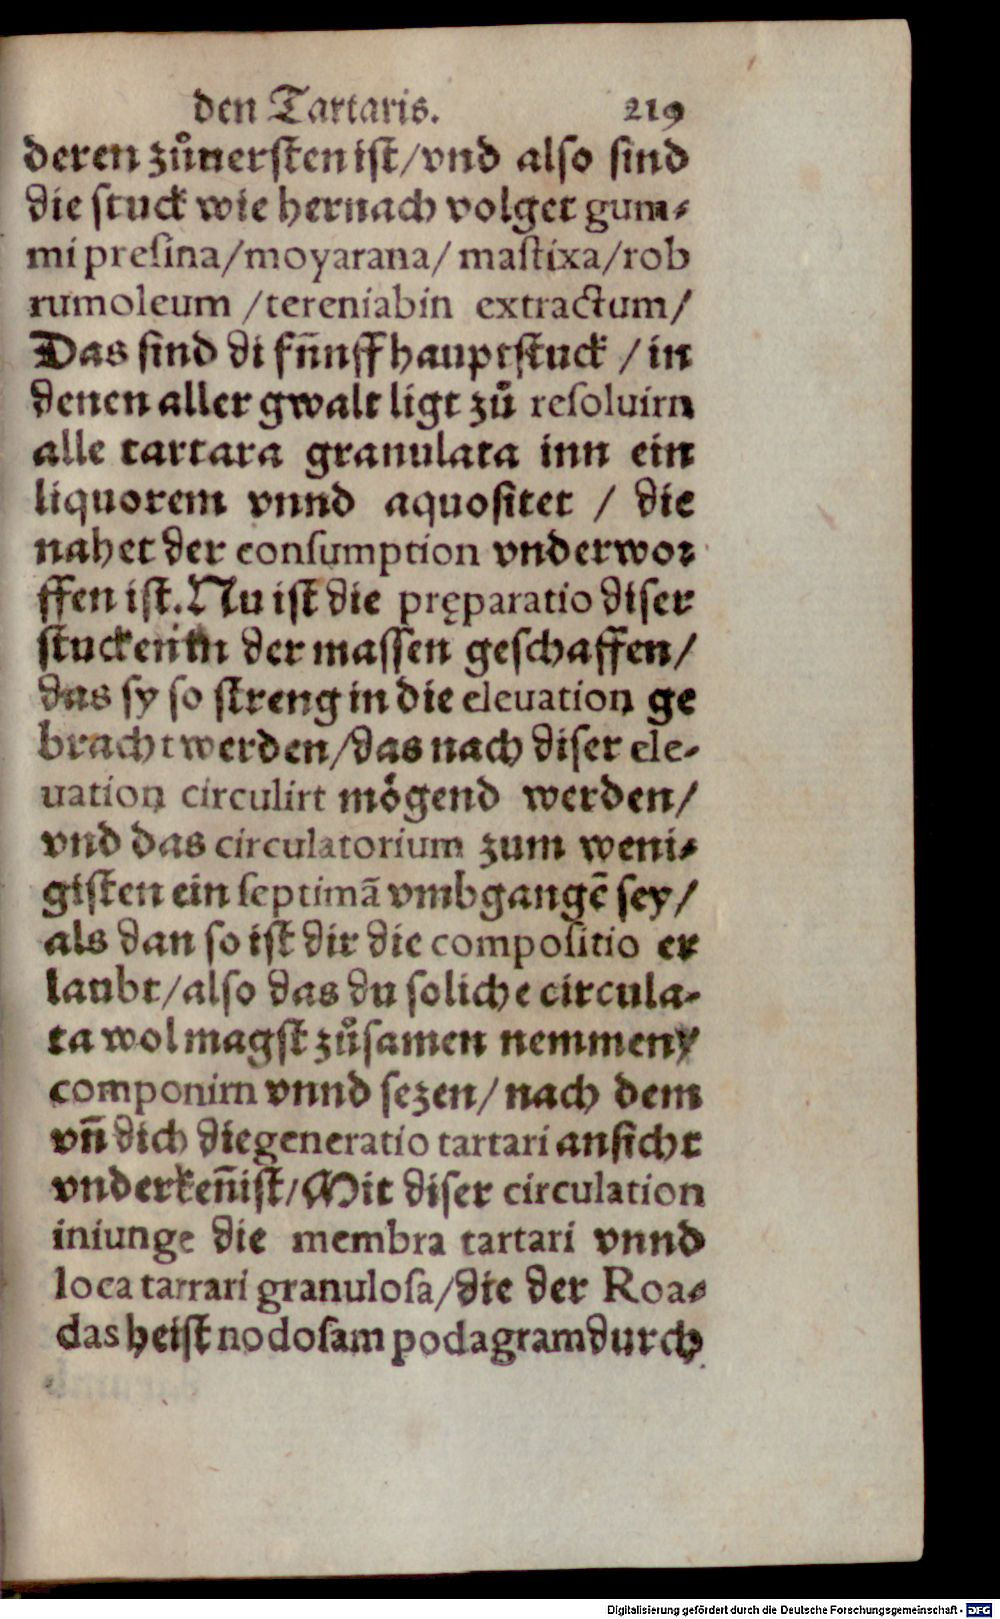 den Tartaris. 219
deren zůnersten ist/vnd also sind
die stuck wie hernach volget gum⸗
mi presina/moyarana/ mastixa/rob
rumoleum /tereniabin extractum/
Das sind di fun̄ff hauptstuck /in
denen aller gwalt ligt zů resoluirn
alle tartara granulata inn ein
liquorem vnnd aquositet / die
nahet der consumption vnderwor
ffen ist. Nu ist die pręparatio diser
stucken in der massen geschaffen/
das sy so streng in die eleuation ge
bracht werden/das nach diser ele⸗
uation circulirt mögend werden/
vnd das circulatorium zum weni⸗
gisten ein septimā vmbgangē sey/
als dan so ist dir die compositio er
laubt/also das du soliche circula⸗
ta wol magst zůsamen nemmen/
componirn vnnd sezen/nach dem
vn̄ dich die generatio tartari ansicht
vnd erken̄ist/Mit diser circulation
iniunge die membra tartari vnnd
loca tarrari granulosa/die der Roa⸗
das heist nodosam podagram durch
Digitalisierung gefördert durch die Deutsche Forschungsgemeinschaft - DFG